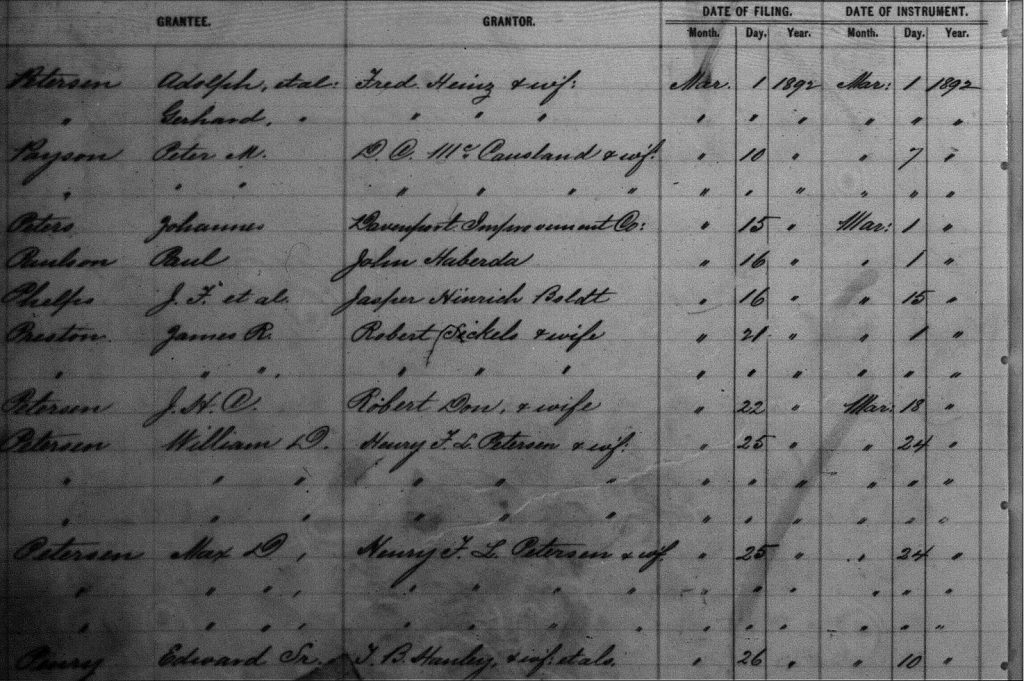 GRANTEE. GRANTOR. DATE OF FILING. DATE OF INSTRUMENT.
Month. Day. Year. Month. Day. Year.
Petersen Adolph, et al: Fred Heinz & wif: Mar. 1 1892 Mar: 1 1892
" Gerhard, " " " " " " " " " "
Payson Peter M. D. C. McCausland & wif. " 10 " " 7 "
" " " " " " " " " " " " "
Peters Johannes Davenport Improvement Co: " 15 " Mar: 1 "
Paulson Paul John Haberda " 16 " " 1 "
Phelps J. F. et al. Jasper Hinrich Boldt " 16 " " 15 "
Preston James R. Robert Sickels & wife " 21 " " 1 "
" " " " " " " " " " " "
Petersen J. H. C. Robert Don, & wife " 22 " Mar: 18 "
Petersen William D. Henry F. L. Petersen & wif. " 25 " " 24 "
" " " " " " " " " " " "
" " " " " " " " " " " "
Petersen Max D, Henry F. L. Petersen & wif. " 25 " " 24 "
" " " " " " " " " " " " "
" " " " " " " " " " " " "
Edward Sr. T. B. Hanley, & wif: et als. " 26 " " 10 "